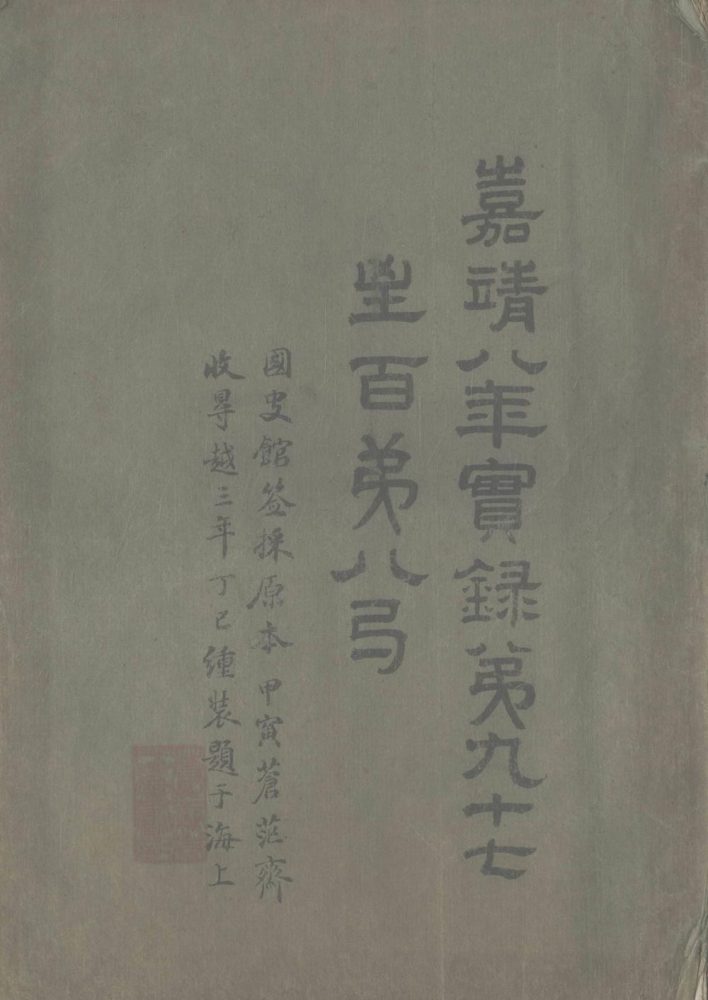 嘉靖八年實録第九十七
至百弟八弓
國史館簽採原本甲寅蒼茫齋
收㝵越三年丁巳緟裝題于海上